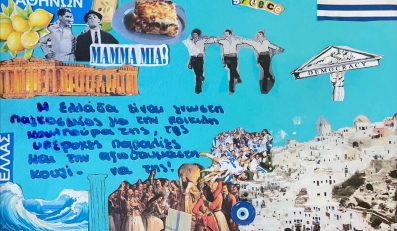 ΑΘΗΝΩΝ
greece
MAMMA MIA!
DEMOCRACY
Η Ελλάδα είναι γνωστή
παγκοσμίως για την ποικίλη
κουλτούρα της, της
υπέροχες παραλίες
και την αξιοθαύμαστη
κουζί-
να της!
ΕΛΛΑΣ